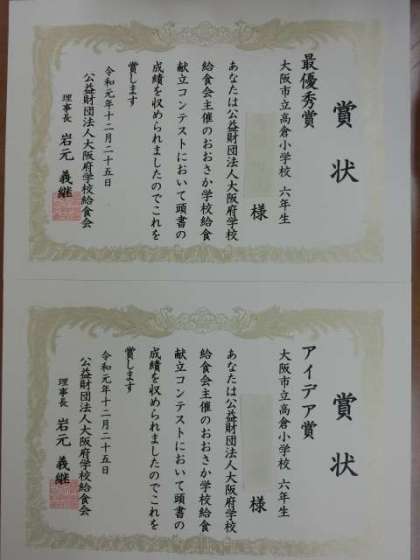 賞状
最優秀賞
大阪市立高倉小学校 六年生
様
あなたは公益財団法人大阪府学校
給食会主催のおおさか学校給食
献立コンテストにおいて頭書の
成績を収められましたのでこれを
賞します
令和元年十二月二十五日
公益財団法人大阪府学校給食会
理事長 岩元 義継
賞状
アイデア賞
大阪市立高倉小学校 六年生
様
あなたは公益財団法人大阪府学校
給食会主催のおおさか学校給食
献立コンテストにおいて頭書の
成績を収められましたのでこれを
賞します
令和元年十二月二十五日
公益財団法人大阪府学校給食会
理事長 岩元 義継